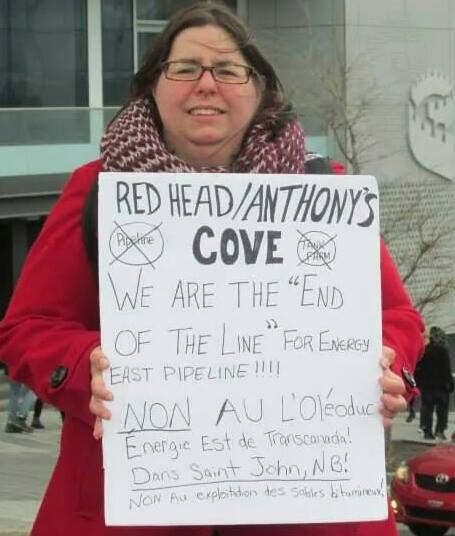 RED HEAD/ANTHONY'S
COVE
Pipeline
TANK
FARM
WE ARE THE "END
OF THE LINE" FOR ENERGY
EAST PIPELINE!!!!
NON AU L'Oléoduc
Énergie Est de Transcanada!
Dans Saint John, NB!
NON Au exploitation des sables bitumineux!